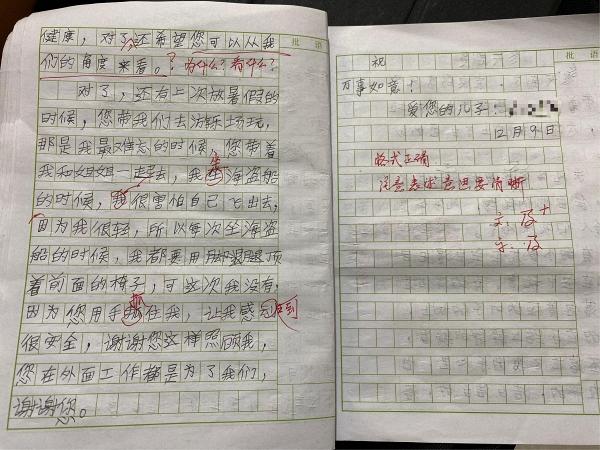 健康，对了还希望您可以从我
们的角度来看。？为什么？看什么？
对了，还有上次放暑假的
时候，您带我们去游乐场玩，
那是我最难忘的时候，您带着
我和姐姐一起去，我坐海盗船
的时候，我很害怕自己飞出去，
因为我很轻，所以每次坐海盗
船的时候，我都要用脚腿顶
着前面的椅子，可这次我没有，
因为您用手抓住我，让我感到
很安全，谢谢您这样照顾我，
您在外面工作都是为了我们，
谢谢您。
批语
祝
万事如意！
爱您的儿子：
12月9日
格式正确
注意表述意思要清晰
文：及+
字：及
批语